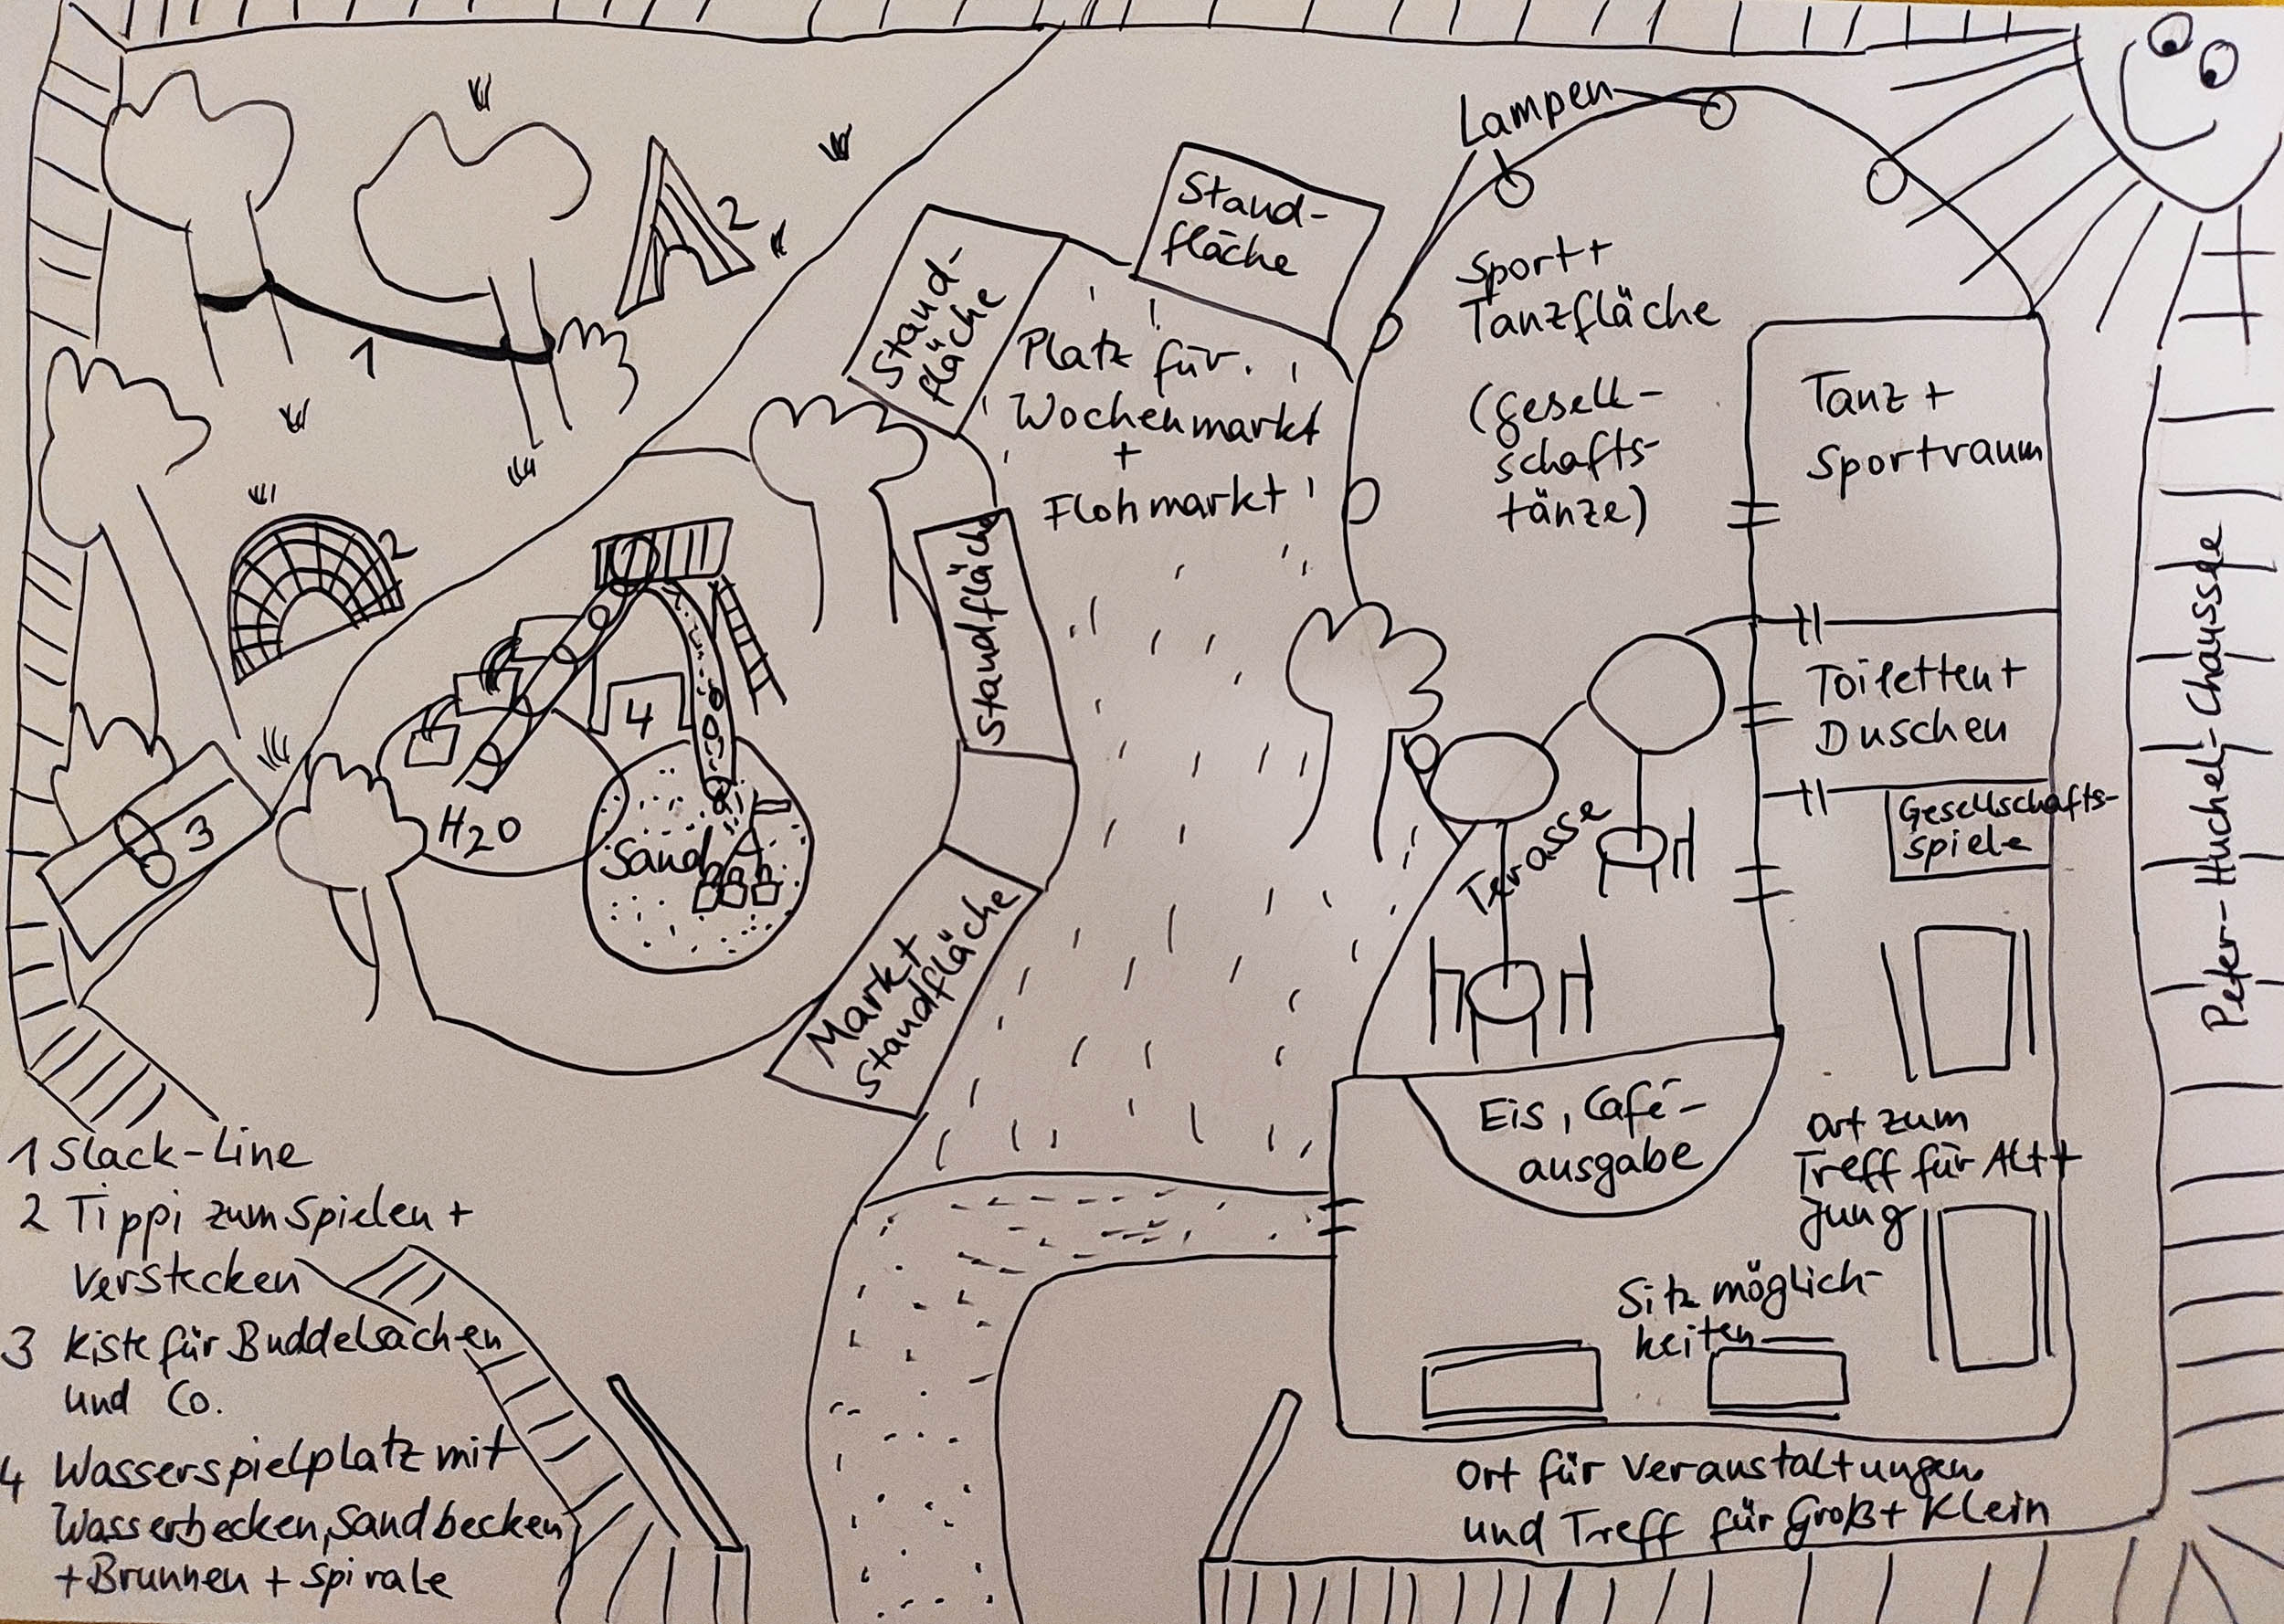 Lampen
Stand-
fläche
Stand-
fläche
Sport+
Tanzfläche
(Gesell-
schafts-
tänze)
Platz für
Wochenmarkt
+
Flohmarkt
Tanz +
Sportraum
2
1
2
Standfläche
4
3
H2O
Sand
Toiletten+
Duschen
Gesellschafts-
spiele
Terasse
Peter-Huchel-Chaussee
Markt
Standfläche
Eis, Café-
ausgabe
Ort zum
Treff für Alt+
Jung
Sitzmöglich-
keiten
Ort für Veranstaltungen
und Treff für Groß+ Klein
1 Slack-Line
2 Tippi zum Spielen +
Verstecken
3 Kiste für Buddelsachen
und Co.
4 Wasserspielplatz mit
Wasserbecken, Sandbecken
+Brunnen + Spirale